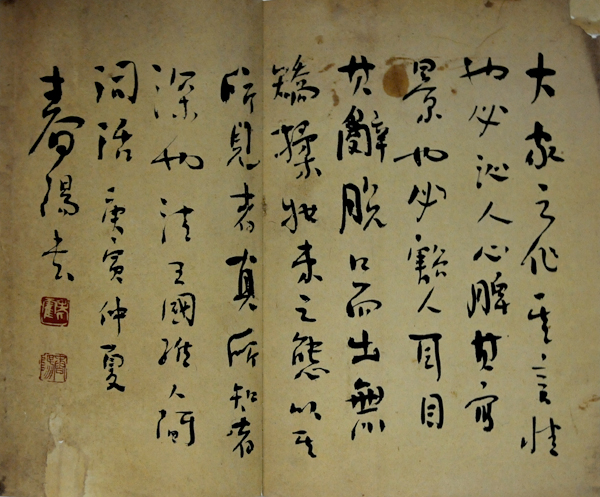 大家之作其言情
也必沁人心脾其寫
景也必豁人耳目
其辭脫口而出無
矯揉妝束之態以其
所見者真所知者
深也 王國維人間
詞話 庚寅仲夏
春陽書